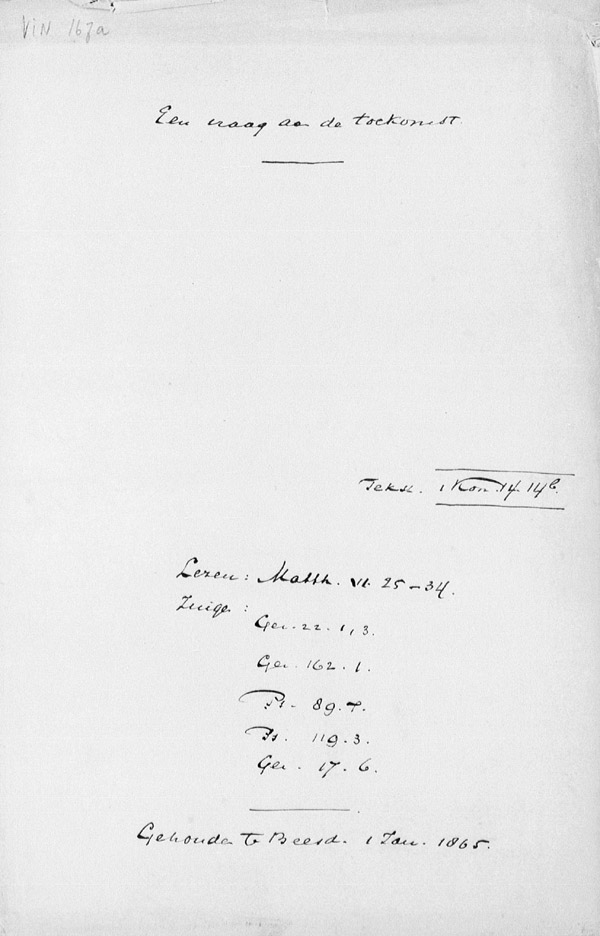 VIN 167a
Een vraag aan de toekomst
Tekst. 1 Kon. 14. 14b.
Lezen: Matth. VI. 25-34.
Zinge:
Gez. 22. 1, 3.
Gez. 162. 1.
Ps. 89. 7.
Ps. 119. 3.
Gez. 17. 6.
Gehouden te Beesd. 1 Jan. 1865.